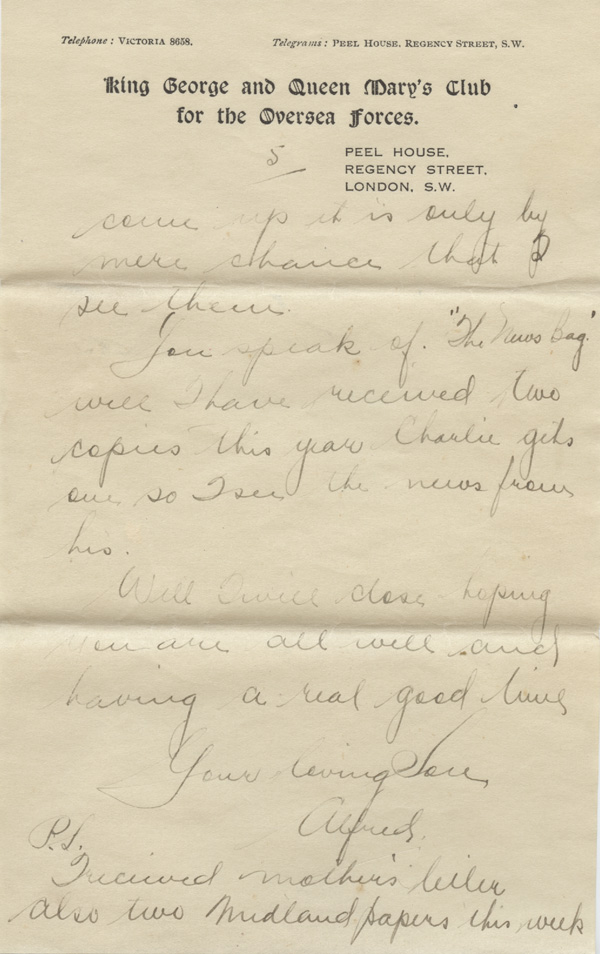 Telephone: VICTORIA 8658. Telegrams: PEEL HOUSE, REGENCY STREET, S.W.
King George and Queen Mary's Club
for the Oversea Forces.
5 PEEL HOUSE,
REGENCY STREET,
LONDON, S.W.
come up it is only by
mere chance that I
see them.
You speak of "The News Bag"
well I have received two
copies this year Charlie gets
one so I see the news from
his.
Well I will close hoping
you are all well and
having a real good time
Your loving Son
Alfred.
P.S.
I received mother's letter
also two Midland papers this week